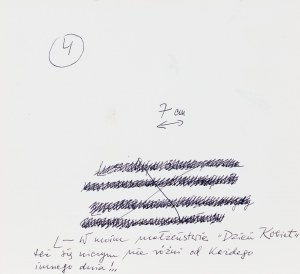 4
7 cm
— W moim małżeństwie "Dzień Kobiet"
też by niczym nie różni od każdego
innego dnia!!!